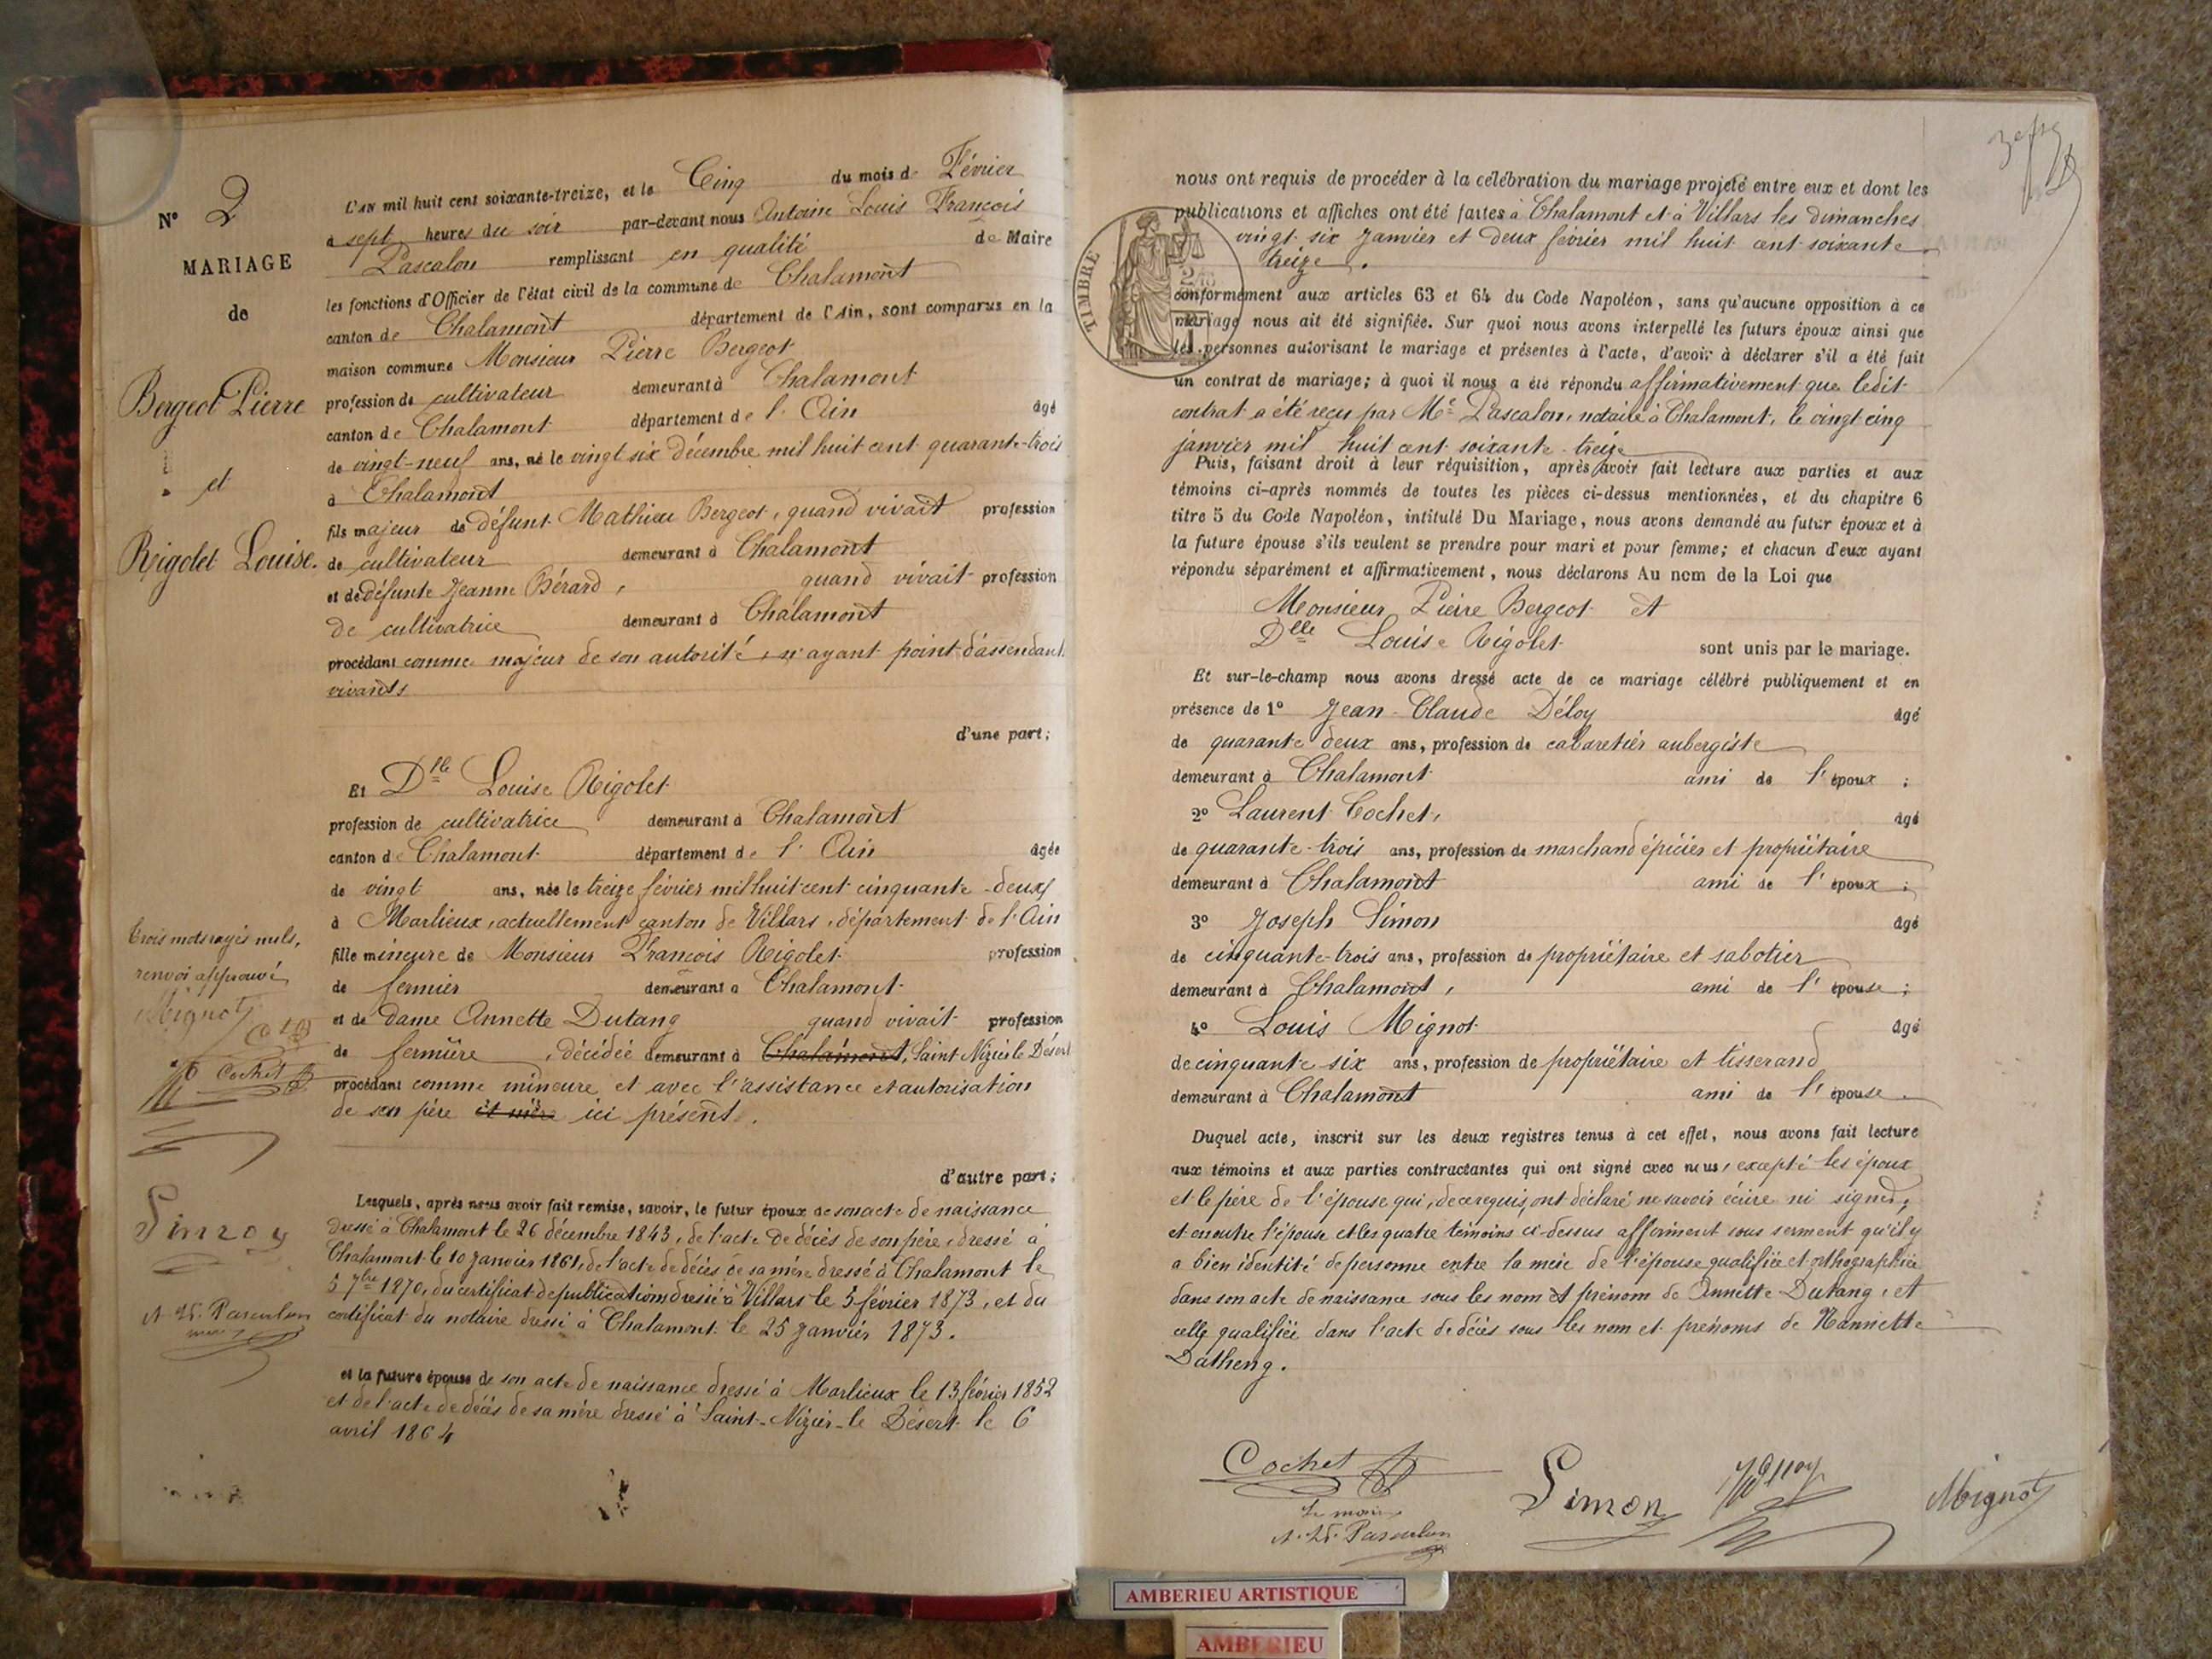 N° 2
MARIAGE
de
Bergeot Pierre
et
Rigolet Louise.
L'AN mil huit cent soixante-treize, et le Cinq du mois de Février
à sept heures du soir par-devant nous Antoine Louis François
Pascalon remplissant en qualité de Maire
les fonctions d'Officier de l'état civil de la commune de Chalamont
canton de Chalamont département de l'Ain, sont comparus en la
maison commune Monsieur Pierre Bergeot
profession de cultivateur demeurant à Chalamont
canton de Chalamont département de l'Ain âgé
de vingt-neuf ans, né le vingt six décembre mil huit cent quarante-trois
à Chalamont
fils majeur de défunt Mathieu Bergeot, quand vivait profession
de cultivateur demeurant à Chalamont
et de défunte Jeanne Bérard, quand vivait profession
de cultivatrice demeurant à Chalamont
procédant comme majeur de son autorité, n'ayant point d'assendant
vivants
d'une part;
Et Dlle Louise Rigolet
profession de cultivatrice demeurant à Chalamont
canton de Chalamont département de l'Ain âgée
de vingt ans, née le treize février mil huit cent cinquante-deux
à Marlieux, actuellement canton de Villars, département de l'Ain
fille mineure de Monsieur François Rigolet profession
de fermier demeurant à Chalamont
et de dame Annette Dutang quand vivait profession
de fermière, décédée demeurant à Chalamont, Saint Nizier le Désert
procédant comme mineure et avec l'assistance et autorisation
de son père et mère ici présent.
d'autre part;
Lesquels, après nous avoir fait remise, savoir, le futur époux de son acte de naissance
dressé à Chalamont le 26 décembre 1843, de l'acte de décès de son père, dressé à
Chalamont le 10 janvier 1861, de l'acte de décès de sa mère dressé à Chalamont le
5 7bre 1870, du certificat de publication dressé à Villars le 5 février 1873, et du
certificat du notaire dressé à Chalamont le 25 janvier 1873.
et la future épouse de son acte de naissance dressé à Marlieux le 13 février 1852
et de l'acte de décès de sa mère dressé à Saint-Nizier-le Désert le 6
avril 1864
trois mots rayés nuls,
renvoi approuvé
Mignot
Cochet
Simon
A. L. F. Pascalon
maire
nous ont requis de procéder à la célébration du mariage projeté entre eux et dont les
publications et affiches ont été faites à Chalamont et à Villars les dimanches
vingt-six janvier et deux février mil huit cent soixante
treize.
TIMBRE
conformément aux articles 63 et 64 du Code Napoléon, sans qu'aucune opposition à ce
mariage nous ait été signifiée. Sur quoi nous avons interpellé les futurs époux ainsi que
les personnes autorisant le mariage et présentes à l'acte, d'avoir à déclarer s'il a été fait
un contrat de mariage; à quoi il nous a été répondu affirmativement que ledit
contrat a été reçu par Me Pascalon, notaire à Chalamont, le vingt cinq
janvier mil huit cent soixante-treize
Puis, faisant droit à leur réquisition, après avoir fait lecture aux parties et aux
témoins ci-après nommés de toutes les pièces ci-dessus mentionnées, et du chapitre 6
titre 5 du Code Napoléon, intitulé Du Mariage, nous avons demandé au futur époux et à
la future épouse s'ils veulent se prendre pour mari et pour femme; et chacun d'eux ayant
répondu séparément et affirmativement, nous déclarons Au nom de la Loi que
Monsieur Pierre Bergeot et
Dlle Louise Rigolet sont unis par le mariage.
Et sur-le-champ nous avons dressé acte de ce mariage célébré publiquement et en
présence de 1° Jean-Claude Déloy âgé
de quarante deux ans, profession de cabaretier aubergiste
demeurant à Chalamont ami de l'époux;
2° Laurent Cochet, âgé
de quarante-trois ans, profession de marchand épicier et propriétaire
demeurant à Chalamont ami de l'époux;
3° Joseph Simon âgé
de cinquante-trois ans, profession de propriétaire et sabotier
demeurant à Chalamont, ami de l'épouse;
4° Louis Mignot âgé
de cinquante-six ans, profession de propriétaire et tisserand
demeurant à Chalamont ami de l'épouse.
Duquel acte, inscrit sur les deux registres tenus à cet effet, nous avons fait lecture
aux témoins et aux parties contractantes qui ont signé avec nous, excepté les époux
et le père de l'épouse qui, de ce requis, ont déclaré ne savoir écrire ni signer;
et en outre l'épouse et les quatre témoins ci-dessus affirment sous serment qu'il y
a bien identité de personne entre la mère de l'épouse qualifiée et orthographiée
dans son acte de naissance sous les nom et prénom de Annette Dutang, et
celle qualifiée dans l'acte de décès sous les nom et prénoms de Nannette
Datheng.
Cochet
Le maire
A. L. F. Pascalon
Simon
Mignot
AMBERIEU ARTISTIQUE
AMBERIEU